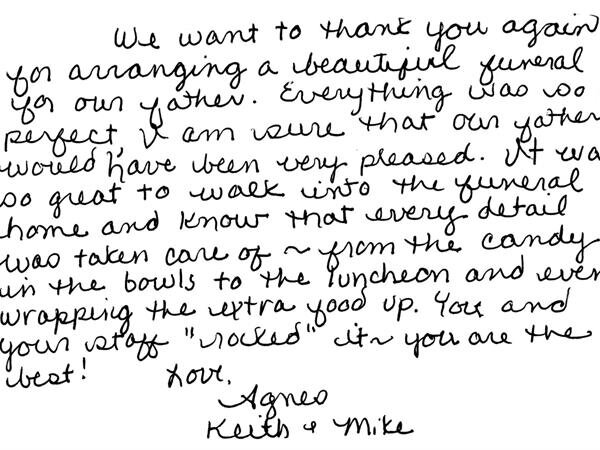 We want to thank you again
for arranging a beautiful funeral
for our father. Everything was so
perfect, I am sure that our father
would have been very pleased. It wa
so great to walk into the funeral
home and know that every detail
was taken care of ~ from the candy
in the bowls to the luncheon and even
wrapping the extra food up. You and
your staff "rocked" it ~ you are the
best! Love,
Agnes
Keith & Mike